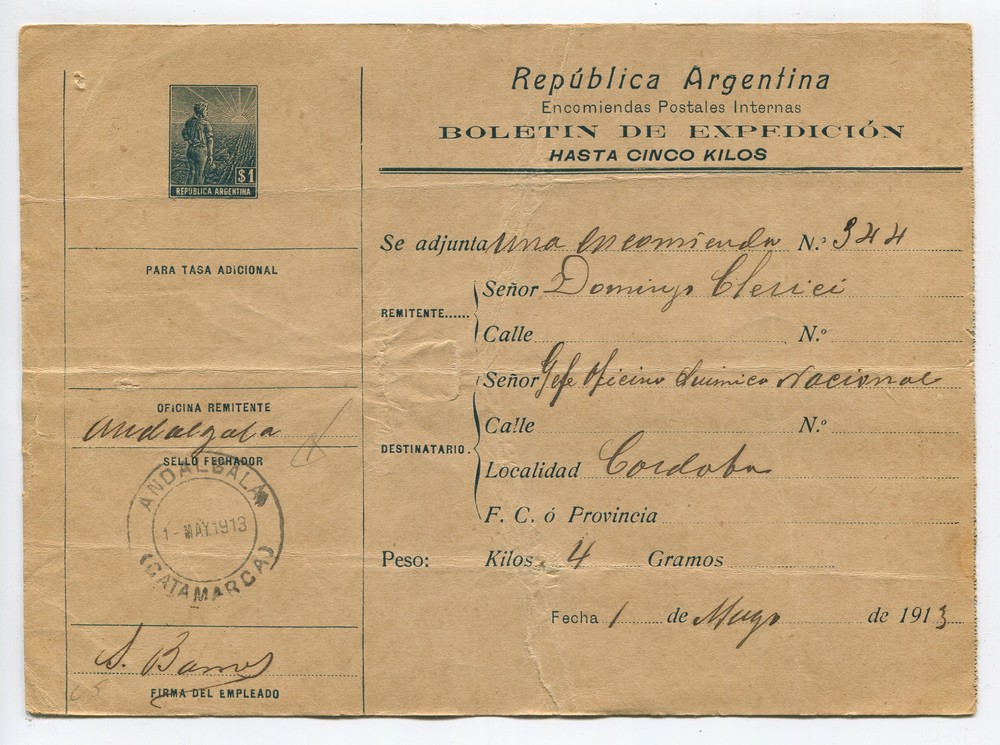 $1
REPÚBLICA ARGENTINA
PARA TASA ADICIONAL
OFICINA REMITENTE
Andalgala
SELLO FECHADOR
ANDALGALA
1- MAY.1913
(CATAMARCA)
FIRMA DEL EMPLEADO
República Argentina
Encomiendas Postales Internas
BOLETIN DE EXPEDICIÓN
HASTA CINCO KILOS
Se adjunta una encomienda N.º 344
REMITENTE......
Señor Domingo Clerici
Calle N.º
DESTINATARIO.
Señor Gefe Oficina Quimica Nacional
Calle N.º
Localidad Cordoba
F. C. ó Provincia
Peso: Kilos 4 Gramos
Fecha 1 de Mayo de 1913